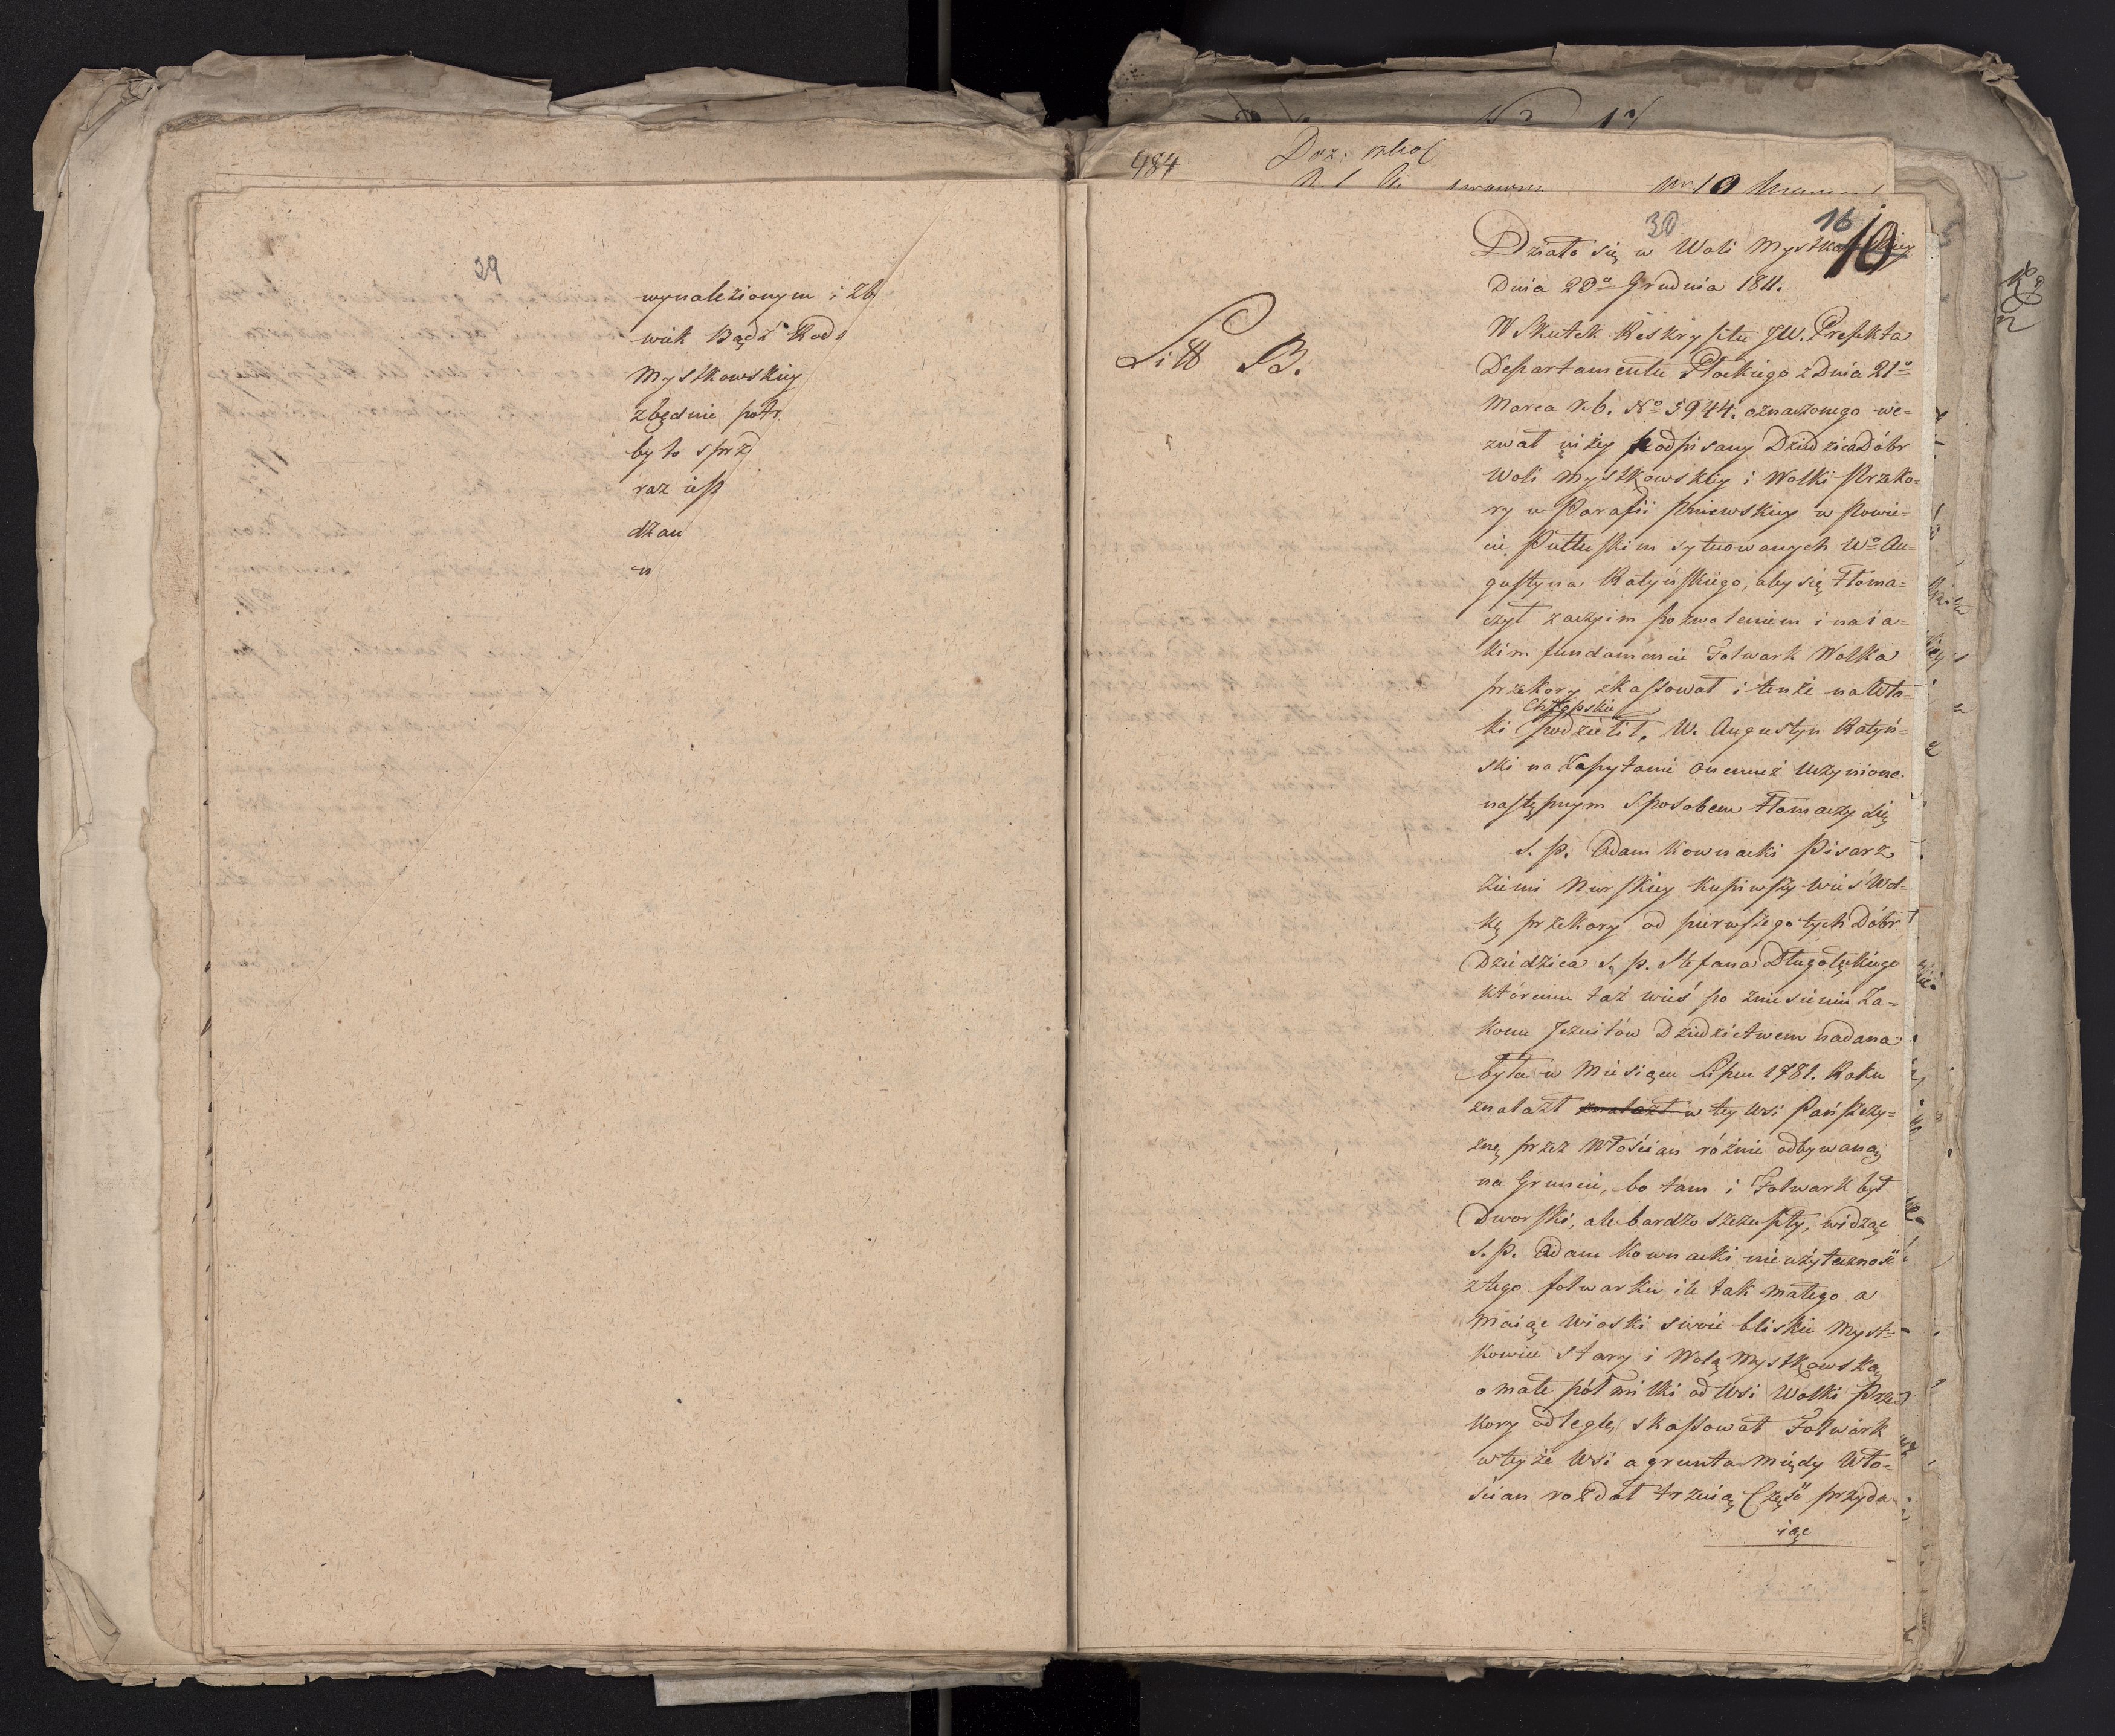 29
wynalezionym i zby
wiek Bądź Rods
Mystkowskiey
zbędnie potr
było sprz
raz iest
dkan
n
484
Doz:
30
16
10
Działo się w Woli Mystkowskiey
Dnia 23º Grudnia 1811.
Litt B.
W Skutek Reskryptu JW. Prefekta
Departamentu Płockiego z Dnia 21º
Marca r. b. Nº 5944. oznaczonego we=
zwał niżey podpisany Dziedzica Dóbr
Woli Mystkowskiey i Wolki Przeko=
ry w Parafii Pniewskiey w Powie=
cie Pułtuskim sytuowanych Wº Au=
gustyna Ratyńskiego, aby się tłoma=
czył za czyim pozwoleniem i na ia=
kim fundamencie Folwark Wolka
przekory skassował i tenże na Wło=
Chłopskie
ki podzielił, W. Augustyn Ratyń=
ski na Zapytanie onemuż uczynione
następnym sposobem tłomaczy się
S. p. Adam Kownacki Pisarz
Ziemi Nurskiey kupiwszy wieś Wol=
kę przekory od pierwszego tych Dóbr
Dziedzica S. p. Stefana Długołęckiego
któremu taż wieś po zniesieniu Za=
konu Jezuitów Dziedzictwem nadana
była w Miesiącu Lipcu 1781. Roku
znalazł znalazł w tey wsi Pańszczy=
znę przez Włościan różnie odbywaną
na Gruncie, bo tam i Folwark był
Dworski, ale bardzo szczupły, widząc
S. p. Adam Kownacki nieużyteczność
z tego folwarku ile tak małego a
maiąc wioski swoie bliskie Myst=
kowiec stary i Wolą Mystkowską
o małe pół milki od Wsi Wolki Prze
kory odległe, skassował Folwark
w teyże Wsi a grunta między Wło=
ścian rozdał trzecią Część przyda
iąc